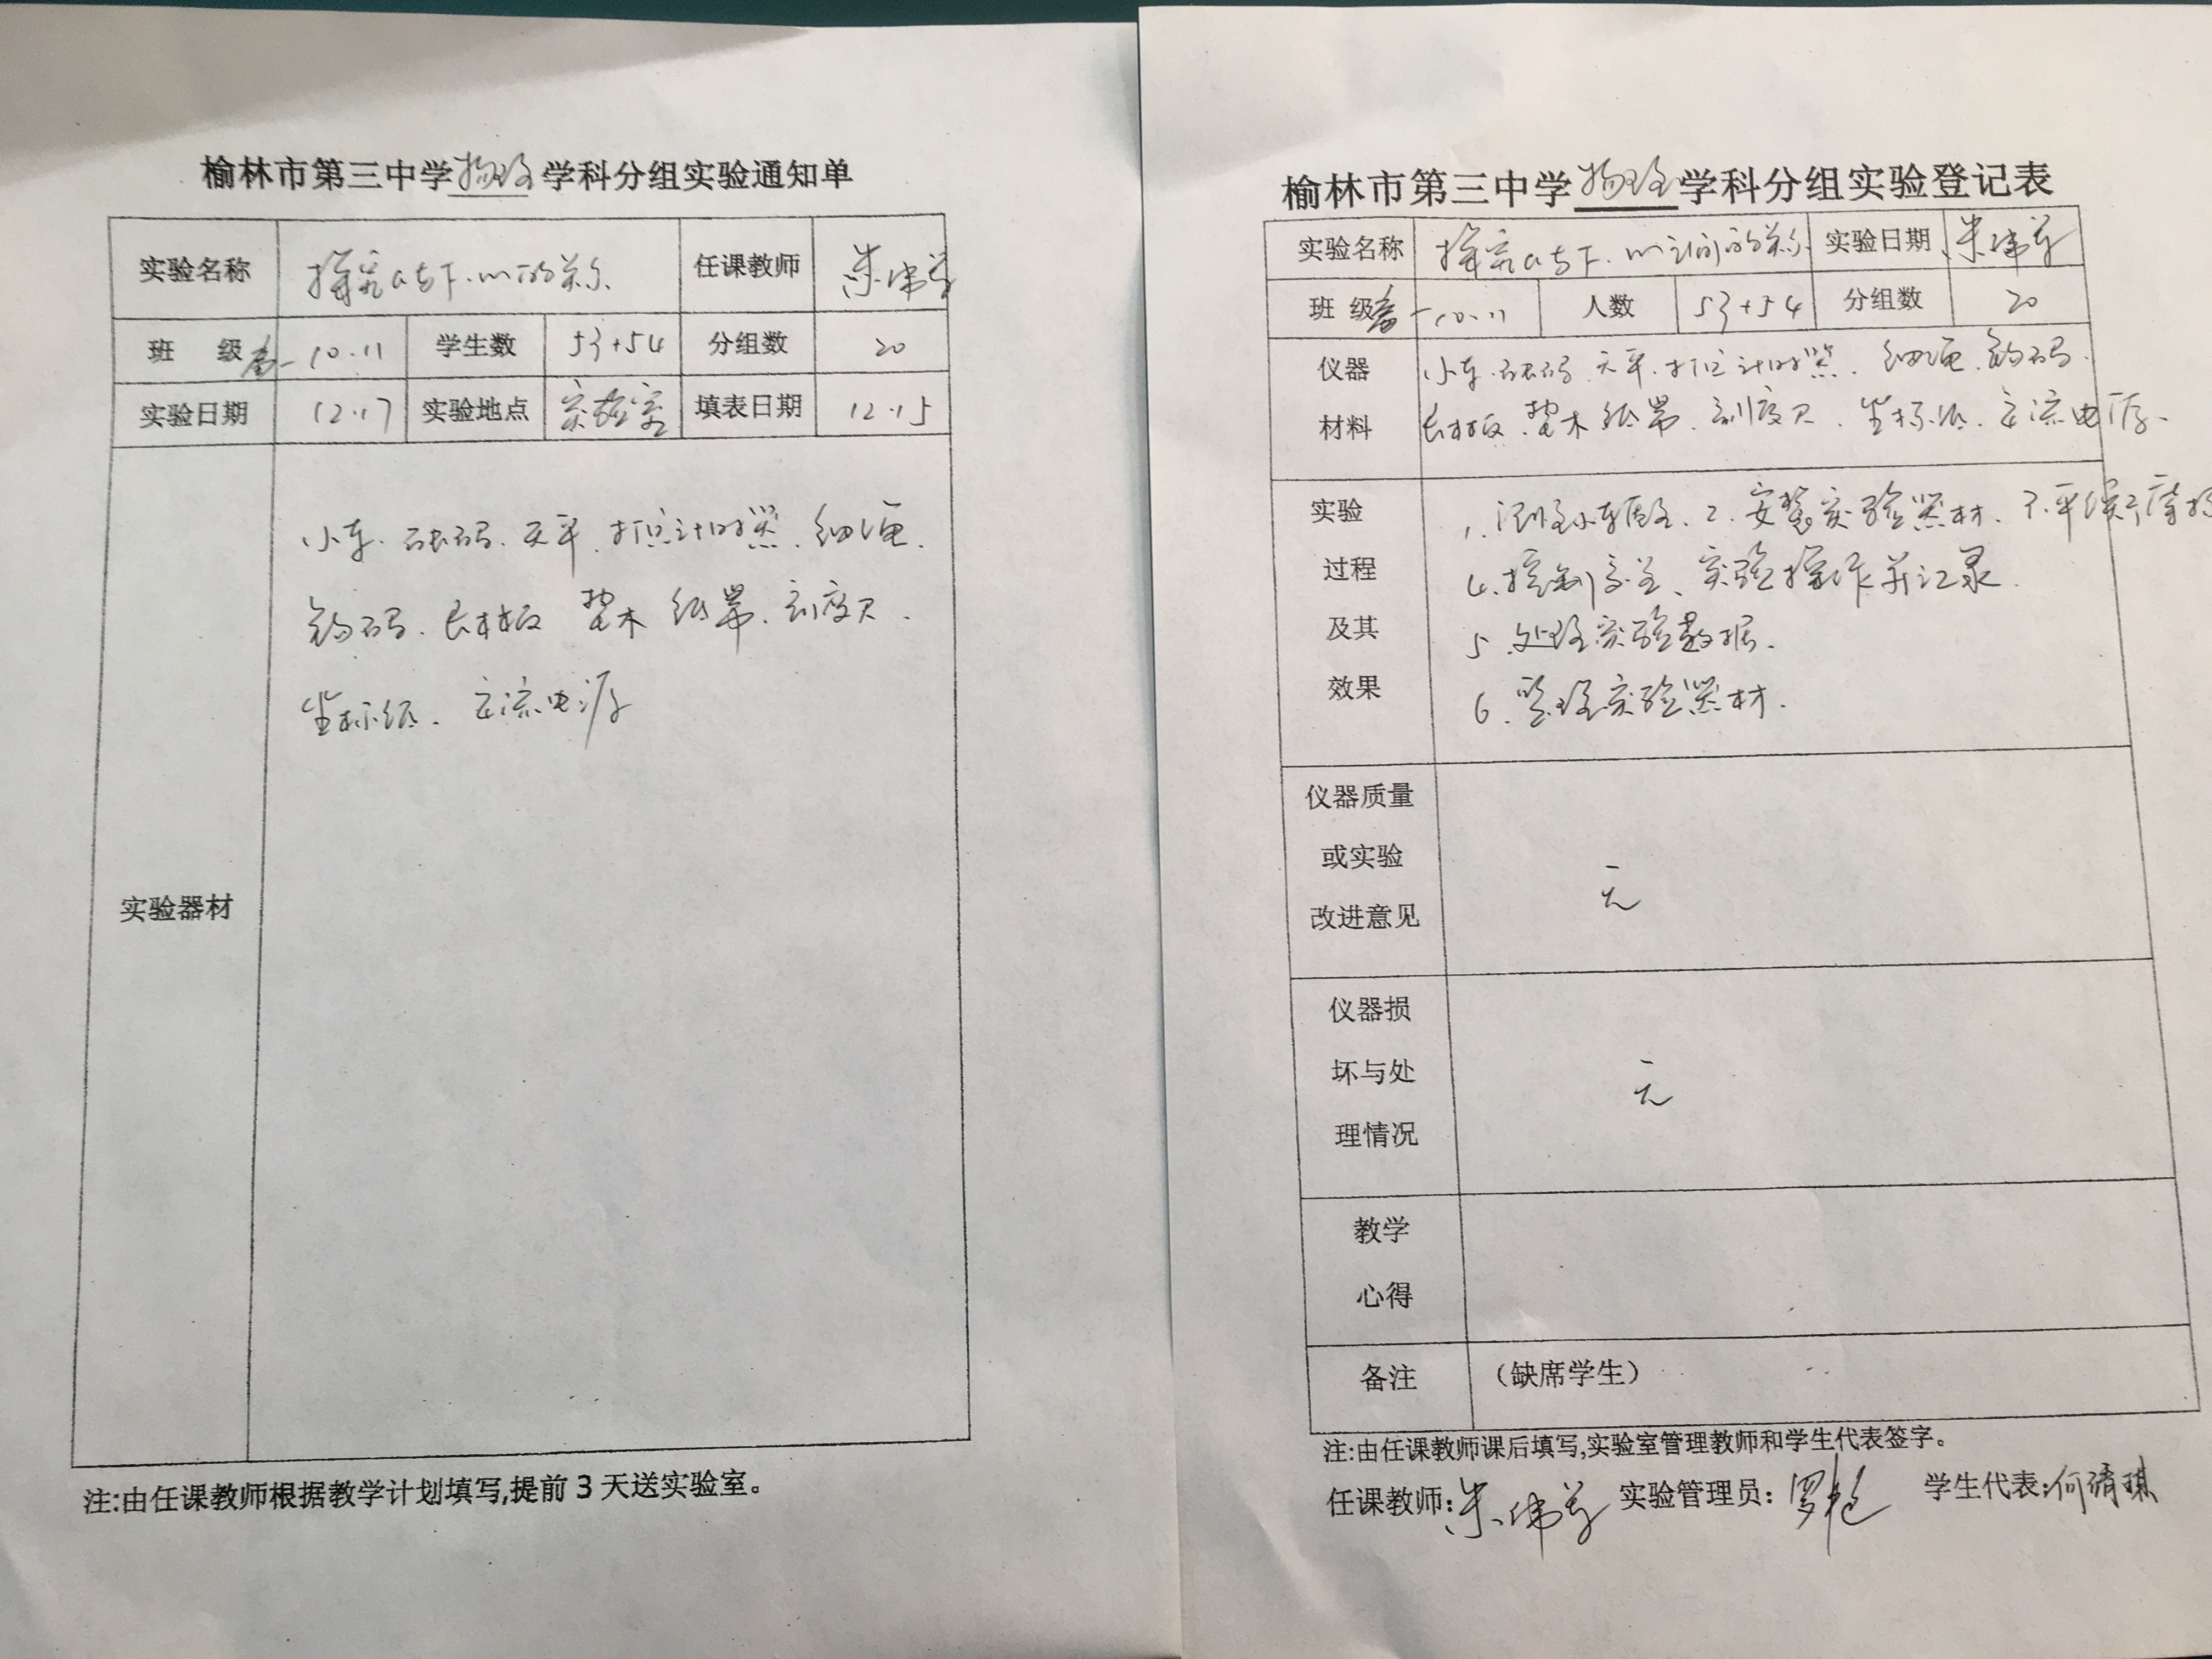 榆林市第三中学物理学科分组实验通知单
实验名称 探究a与F.m的关系 任课教师 朱伟
班 级 高一10.11 学生数 53+54 分组数 20
实验日期 12.17 实验地点 实验室 填表日期 12.15
小车.砝码.天平.打点计时器.细绳.
钩码.长木板 垫木 纸带.刻度尺.
坐标纸.交流电源
实验器材
注:由任课教师根据教学计划填写,提前3天送实验室。
榆林市第三中学物理学科分组实验登记表
实验名称 探究a与F.m之间的关系 实验日期 朱伟
班 级 高一10.11 人数 53+54 分组数 20
仪器 小车.砝码.天平.打点计时器.细绳.钩码.
材料 长木板.垫木 纸带.刻度尺.坐标纸.交流电源.
实验 1.测量小车质量.2.安装实验器材.3.平衡摩擦
过程 4.控制变量、实验操作并记录.
及其 5.处理实验数据.
效果 6.整理实验器材.
仪器质量
或实验 无
改进意见
仪器损
坏与处 无
理情况
教学
心得
备注 (缺席学生)
注:由任课教师课后填写,实验室管理教师和学生代表签字。
任课教师:朱伟 实验管理员:罗艳 学生代表:何靖琪